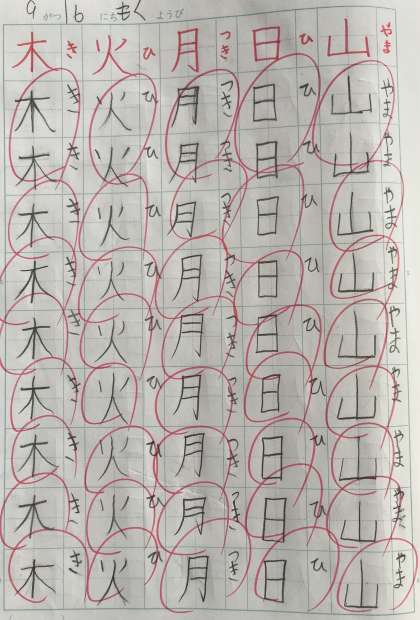 9がつ16にちもくようび
やまやまやまやまやまやまやまやまやまやま
山山山山山山山山山山
ひひひひひひひひひひ
日日日日日日日日日日
つきつきつきつきやきつきつきつきつきつき
月月月月月月月月月月
ひひひひひひひひひひ
火火火火火火火火火火
きききききききききき
木木木木木木木木木木